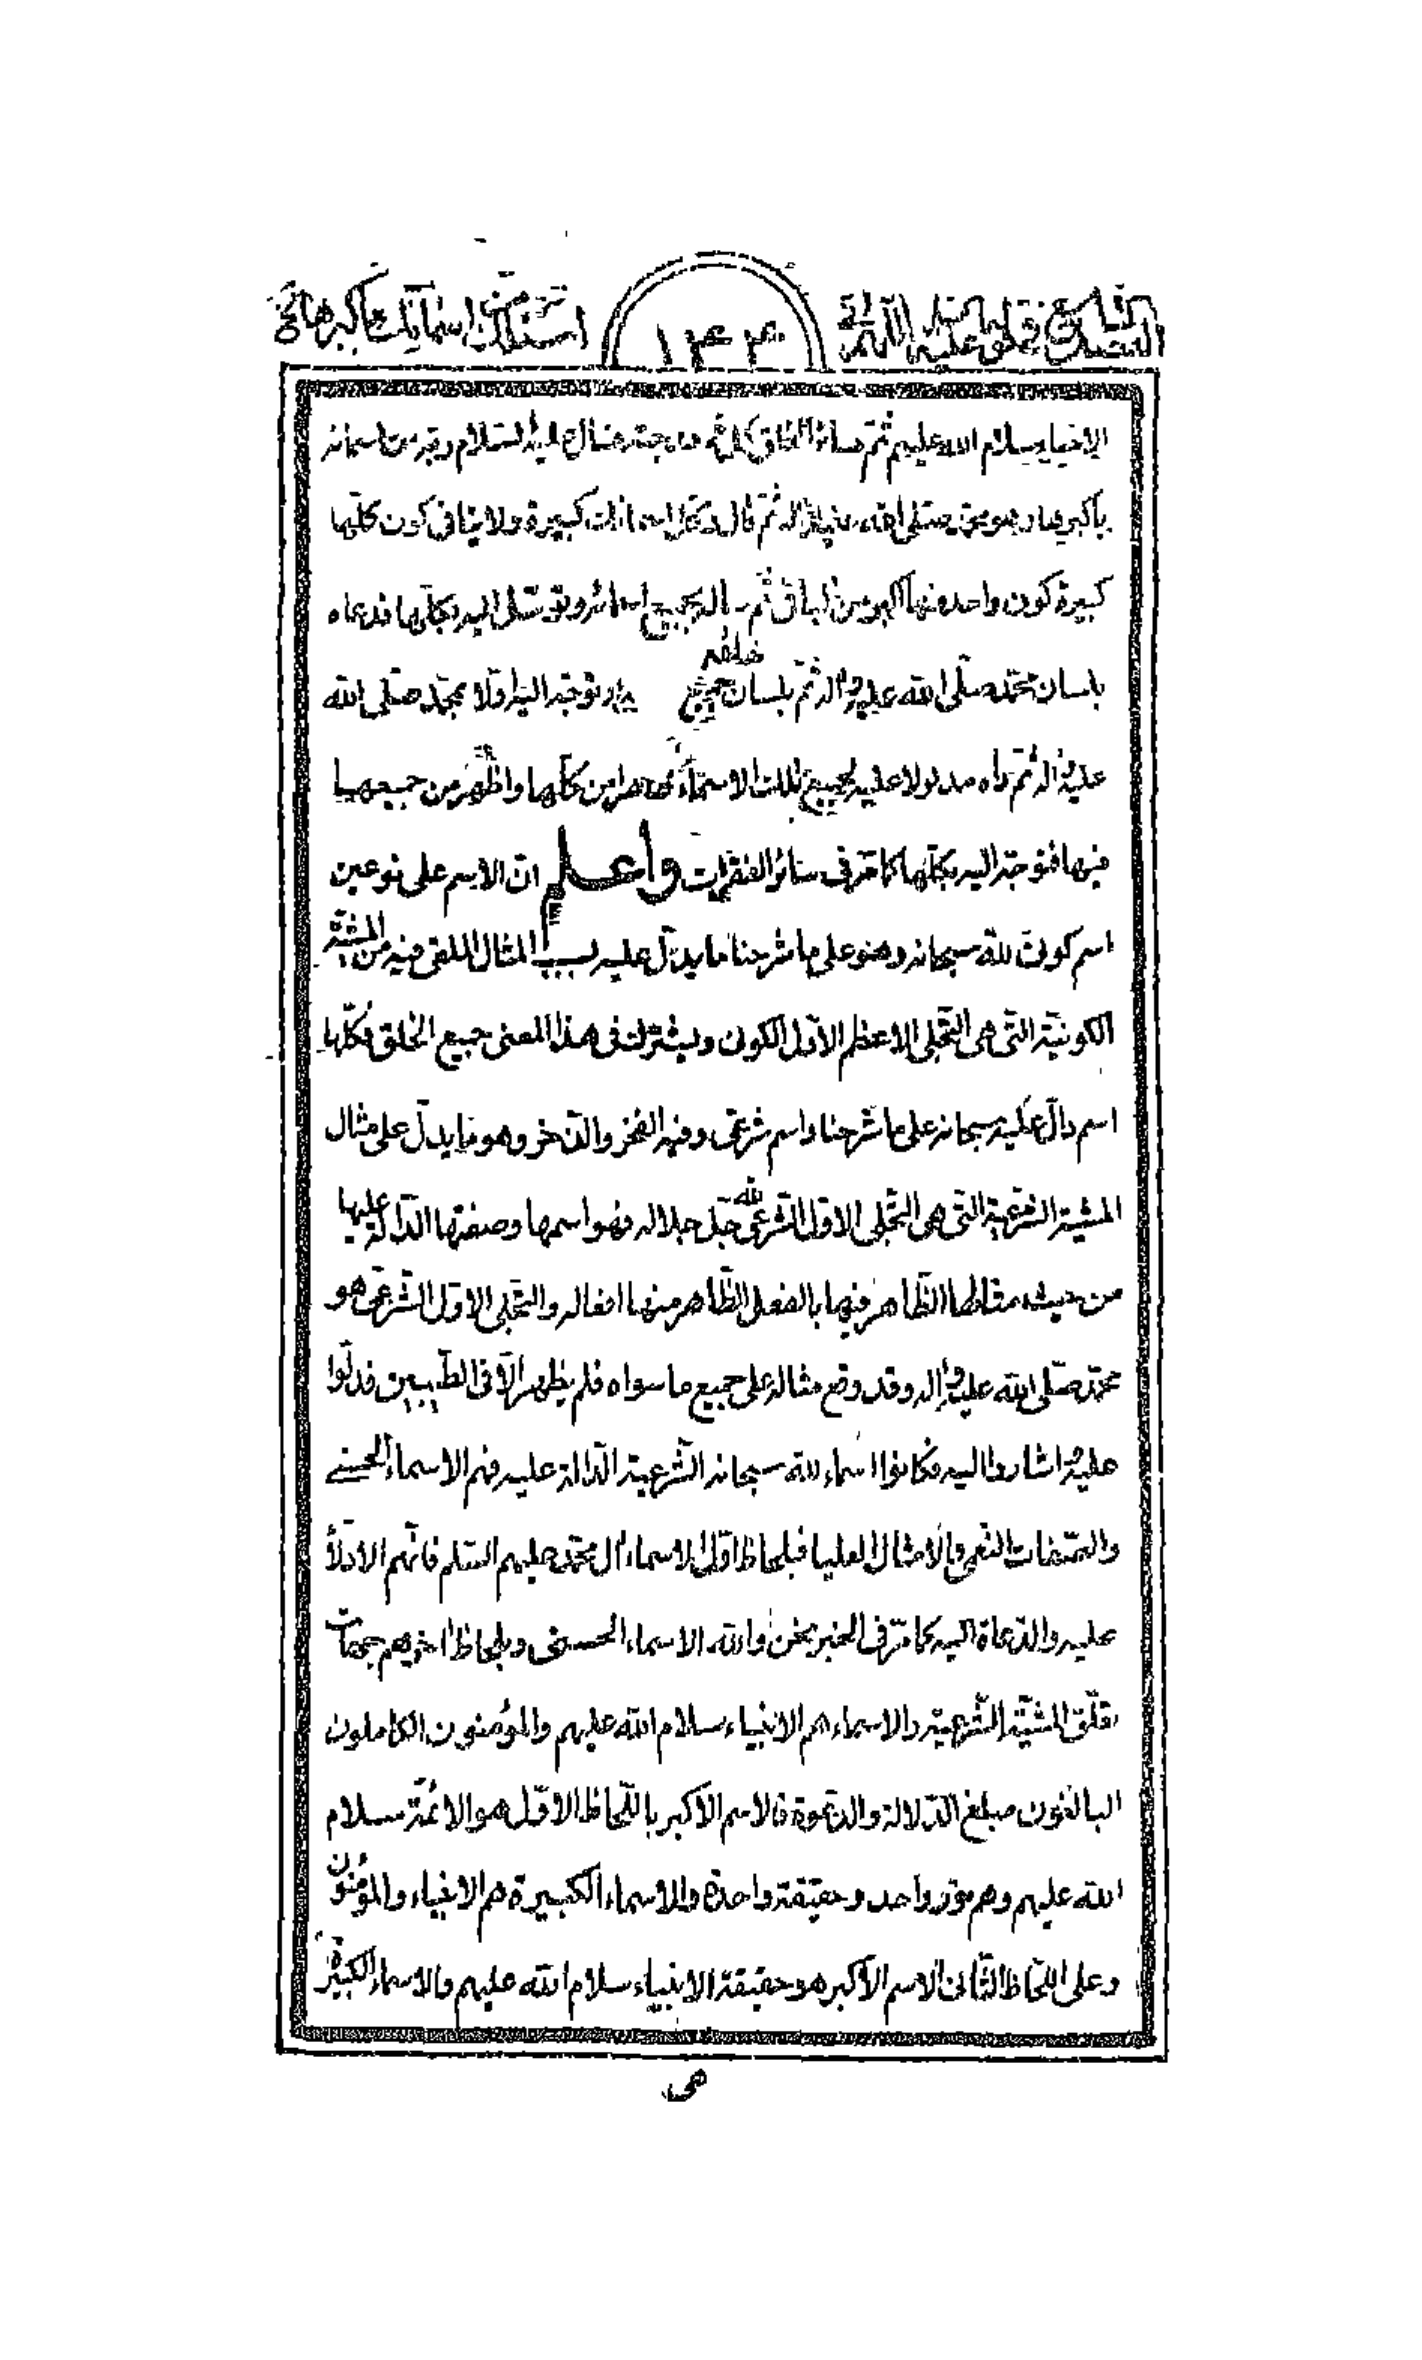 ١٤٤
الانبياء سلام الله عليهم ثم سائر الخلق كل في وجهته فقال عليه السلام وقد من اسمائه
باكبرها وهو محمد صلى الله عليه واله ثم قال وكل اسمائك كبيرة ولا ينافى كون كلها
كبيرة كون واحد منها اكبر من الباقى ثم سال بجميع اسمائه وتوسل اليه بكلها فدعاه
بلسان محمد صلّى الله عليه واله ثم بلسان جميع خلقه وتوجه اليه اولا بمحمد صلى الله
عليه واله ثم راه مدلولا عليه لجميع تلك الاسماء من كلها واظهر من جميعها
فيها فتوجه اليه بكلها كما مر فى سائر الفقرات واعلم ان الاسم على نوعين
اسم كونى لله سبحانه وهو على ما شرحنا ما يدل عليه بسبب المثال الملقى فيه من المشية
الكونية التى هى التجلى الاعظم الاول الكونى ويشترك فى هذا المعنى جميع الخلق فكلها
اسم دال عليه سبحانه على ما شرحنا واسم شرعى وفيه الفخر والذخر وهو ما يدل على مثال
المشية الشرعية التى هى التجلى الاول الشرعى لله جل جلاله فهو اسمها وصفتها الدالة عليها
من حيث مثالها الظاهر فيها بالفعل الظاهر منها افعاله والتجلى الاول الشرعى هو
محمد صلى الله عليه واله وقد وقع مثاله على جميع ما سواه فلم يظهر الا فى الطيبين فدلوا
عليه واشاروا اليه فكانوا اسماء لله سبحانه الشرعية الدالة عليه فهم الاسماء الحسنى
والصفات والامثال العليا فبلحاظ اول الاسماء ال محمد عليهم السلم فانهم الادلاء
عليه والدعاة اليه كما مر فى الخبر نحن والله الاسماء الحسنى وبلحاظ اخر هم جهات
تعلق المشية الشرعية والاسماء هم الانبياء سلام الله عليهم والمؤمنون الكاملون
البالغون مبلغ الدلالة والدعوة فالاسم الاكبر باللحاظ الاول هو الائمة سلام
الله عليهم وهم نور واحد وحقيقة واحدة والاسماء الكبيرة هم الانبياء والمؤمنون
وعلى اللحاظ الثانى الاسم الاكبر هو حقيقة الانبياء سلام الله عليهم والاسماء الكبيرة
هى